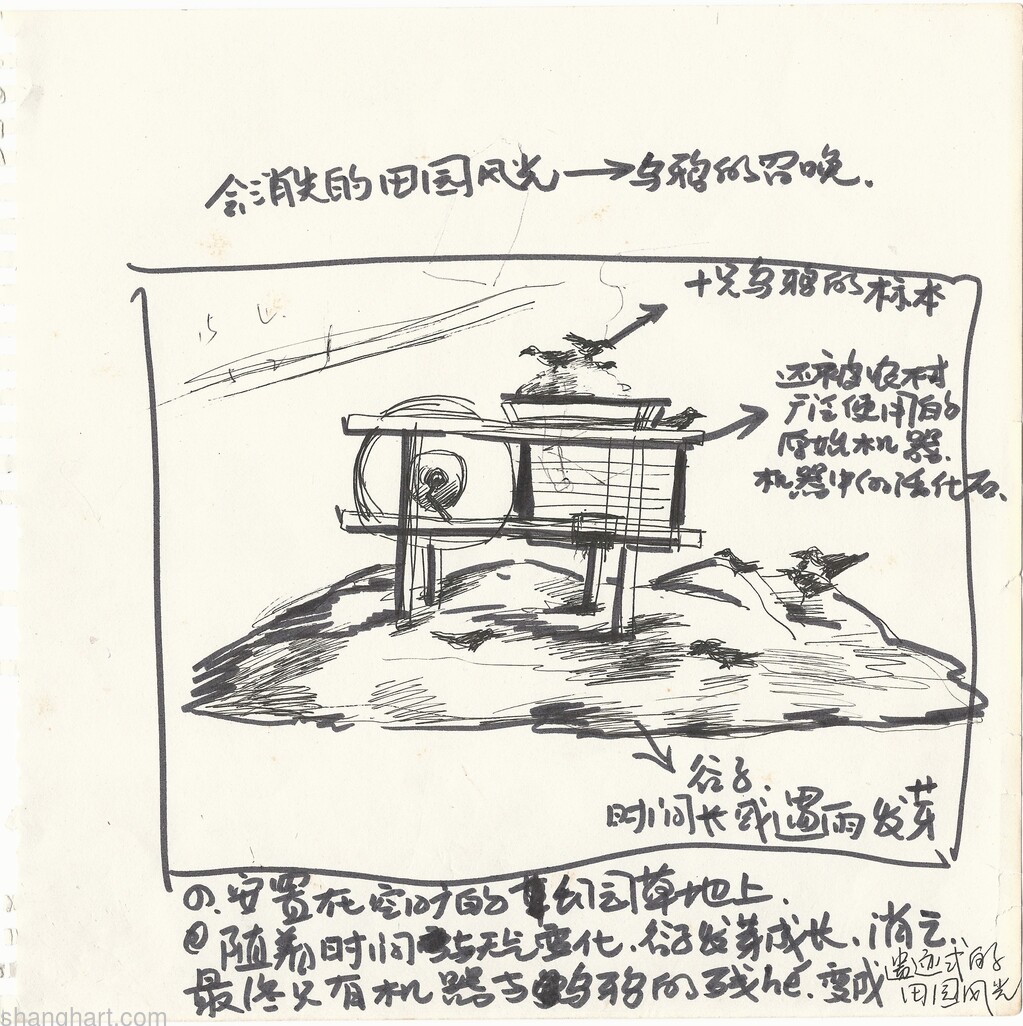 会消失的田园风光→乌鸦的召唤.
十只乌鸦的标本
还被农村
广泛使用的
原始机器.
机器中的活化石.
谷子.
时间长或遇雨发芽
①.安置在空旷的公园草地上.
②随着时间与天气变化.谷子发芽成长.消亡.
最终只有机器与乌鸦的残骸.变成遗迹式的
田园风光
shanghart.com